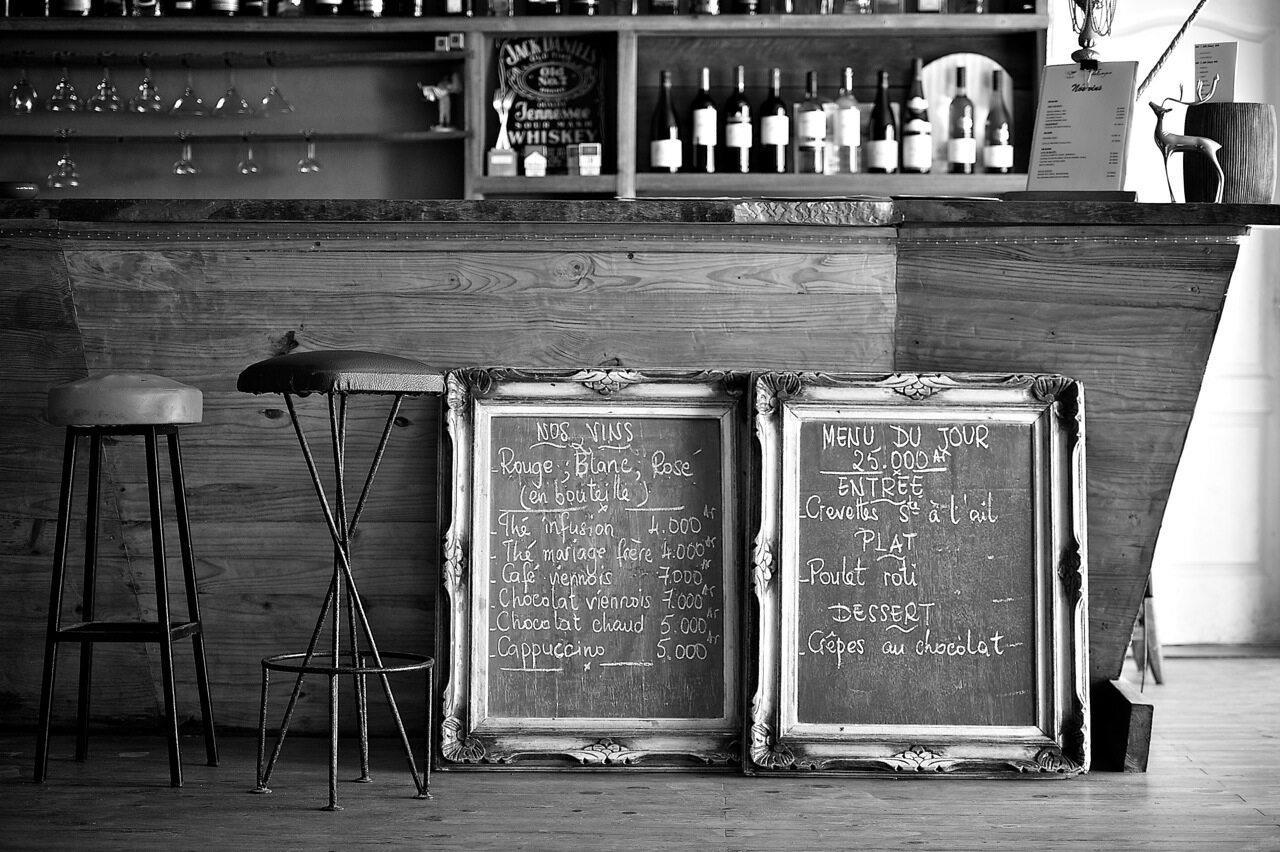 JACK DANIEL'S
OLD
No. 7
QUALITY
Tennessee
SOUR MASH
WHISKEY
Nos vins
NOS VINS
- Rouge ; Blanc ; Rosé
(en bouteille)
- Thé infusion 4.000 Ar
- Thé mariage frère 4.000 Ar
- Café viennois 7.000 Ar
- Chocolat viennois 7.000 Ar
- Chocolat chaud 5.000 Ar
- Cappuccino 5.000 Ar
MENU DU JOUR
25.000 Ar
ENTRÉE
- Crevettes Stés à l'ail
PLAT
- Poulet roti
DESSERT
- Crêpes au chocolat